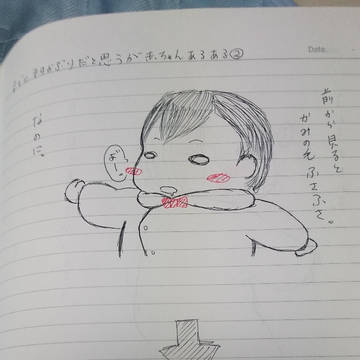 まえかぶりだと思うが赤ちゃんあるある②
Date
前から見ると
かみの毛ふさふさ。
よー。
なのに。